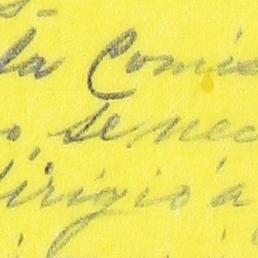 la Comis
se nec
dirigió a